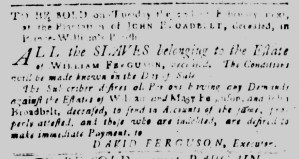 TO BE SOLD on Tuesday the February next,
at the of JOHN BROADBELT, deceased, in
ALL the SLAVES belonging to the Estate
of WILLIAM FERGUSON, deceased. The Conditions
will be made known on the Day of Sale.
The Subscriber desires all Persons having any Demands
against the Estates of William and Mary Ferguson, and John
Broadbelt, deceased, to send in Accounts of the same, pro-
perly attested, and those who are indebted, are desired to
make immediate Payment, to
DAVID FERGUSON, Executor.